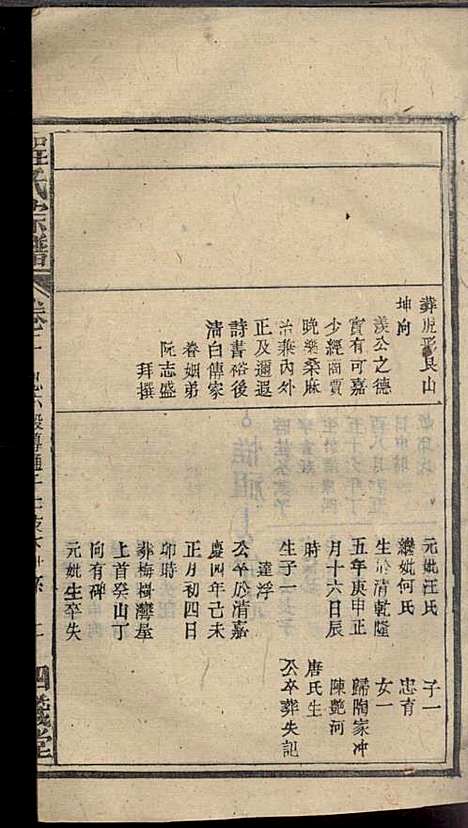 葬虎形艮山
坤向
羨公之德
實有可嘉
少經商賈
晩樂桑麻
治兼內外
正及邇遐
詩書裕後
清白傳家
眷姻弟
阮志盛
拜撰
元妣汪氏
子一
繼妣何氏
忠有
生於清乾隆
女一
五年庚申正
歸陶家冲
月十六日辰
陳艷河
時
唐氏生
生子一
公卒葬失記
達浮
公卒於清嘉
慶四年己未
正月初四日
卯時
葬梅樹灣屋
上首癸山丁
向有碑
元妣生卒失
氏宗譜
卷二
四義堂